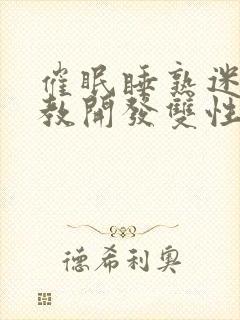 催眠睡熟迷
教開發雙性
德希利奧